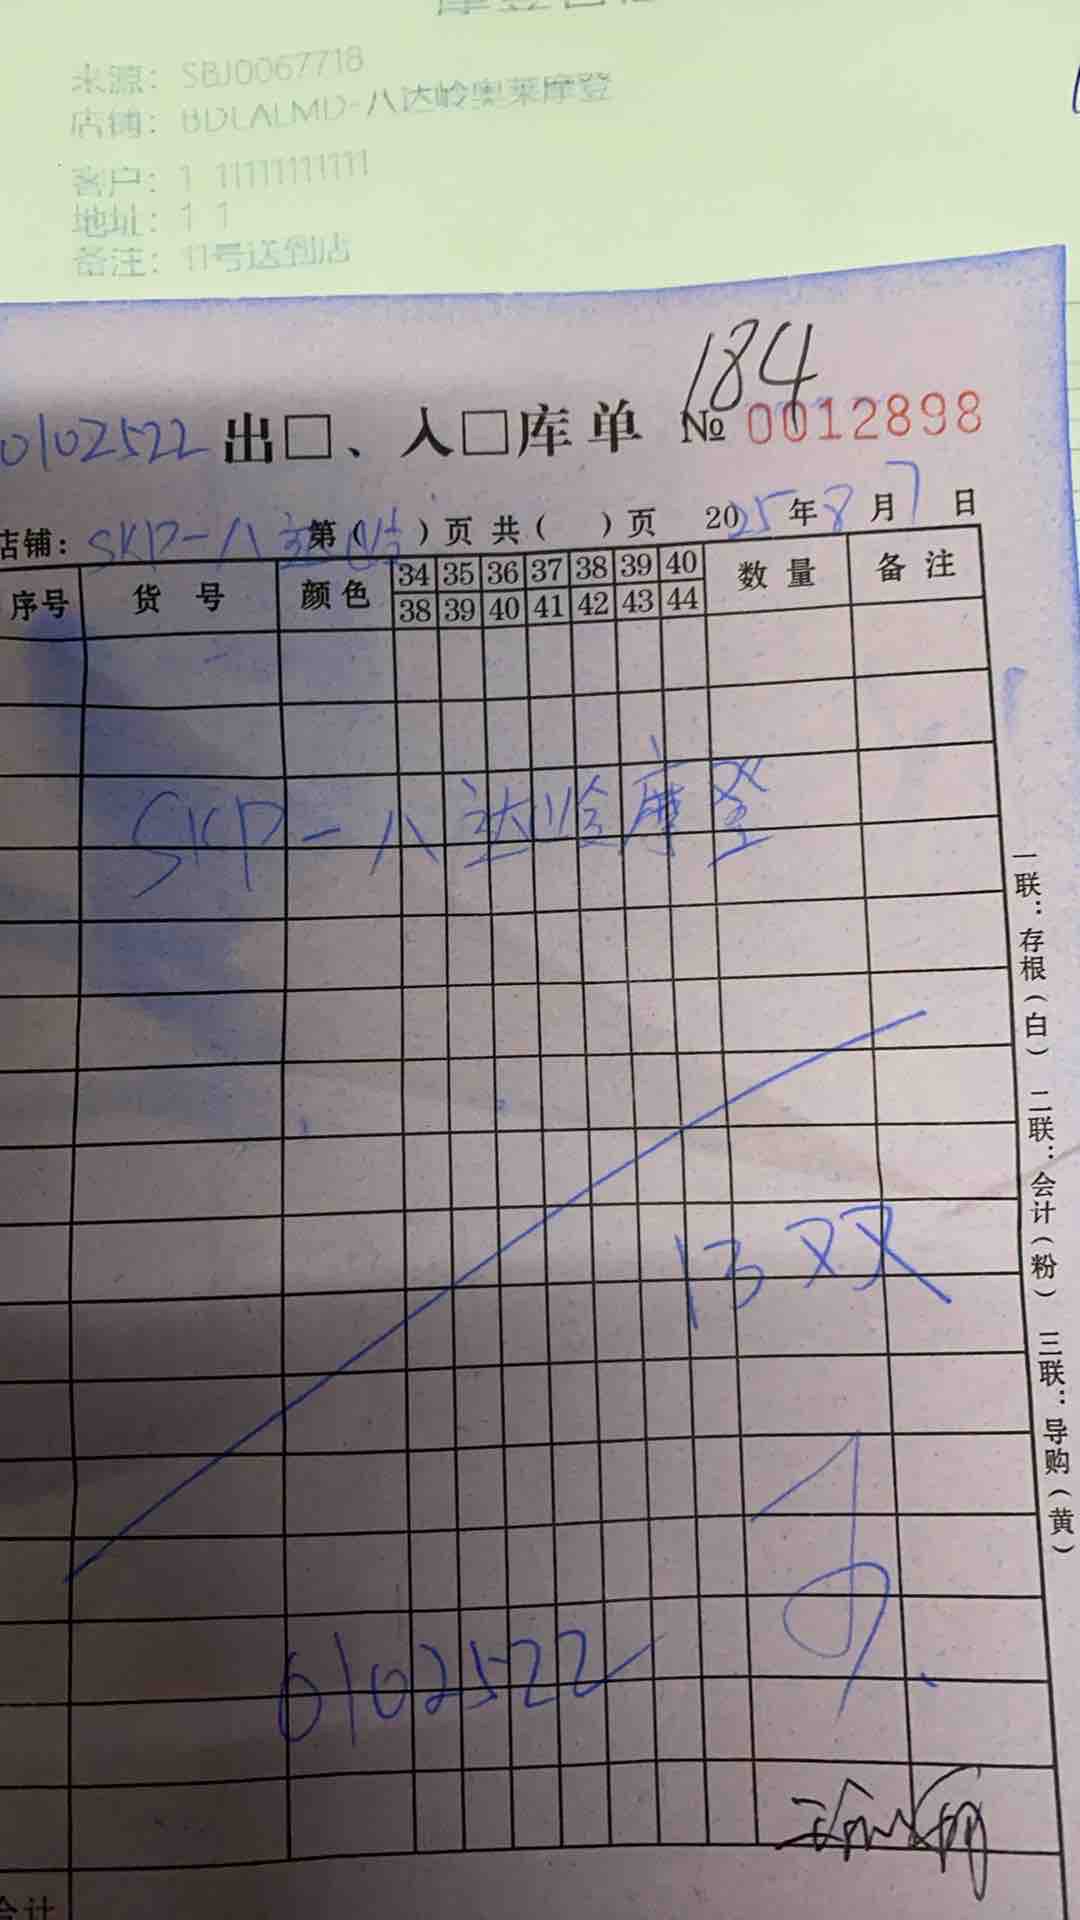 来源: SBJ0067718
店铺: BDLALMD-八达岭奥莱摩登
客户: 1 11111111111
地址: 1 1
备注: 11号送到店
184
0102522 出□、入□库单 № 0012898
店铺: SKP-八达岭 第( )页 共( )页 2025年8月7日
序号 货号 颜色 34 35 36 37 38 39 40 数量 备注
38 39 40 41 42 43 44
SKP-八达岭摩登
13双
0102522
合计
一联:存根(白) 二联:会计(粉) 三联:导购(黄)